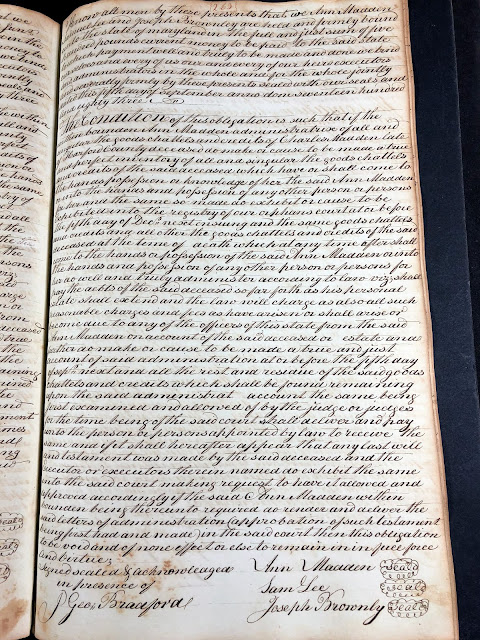 Know all men by these presents that we Ann Madden
Lee and Joseph Brownley are held and firmly bound
the state of maryland in the full and just sum of five
hundred pounds current money to be paid to the said state
which payment well and truly to be made and done we bind
and every of us our and every of our heirs executors
administrators in the whole and for the whole jointly
severally firmly by these presents sealed with our seals and
fifth day of september anno dom seventeen hundred
eighty three
The Condition of this obligation is such that if the
bounden Ann Madden administratrix of all and
singular the goods chattels and credits of Charles Madden late
of Harford County deceased do make or cause to be made a true
perfect inventory of all and singular the goods chattels
and credits of the said deceased which have or shall come to
the hands possession or knowledge of her the said Ann Madden
into the hands and possession of any other person or persons
her and the same so made do exhibit or cause to be
exhibited into the registry of our orphans court at or before
the fifth day of Decr next ensuing and the same goods chattels
credits and all other the goods chattels and credits of the said
deceased at the time of death which at any time after shall
come to the hands or possession of the said Ann Madden or into
the hands and possession of any other person or persons for
her do well and truly administer according to law viz shall
pay the debts of the said deceased so far forth as his personal
estate shall extend and the law will charge as also all such
reasonable charges and fees as have arisen or shall arise or
become due to any of the officers of this state from the said
Ann Madden on account of the said deceased or estate and
further do make or cause to be made a true and just
account of said administration at or before the fifth day
sepr next and all the rest and residue of the said goods
chattels and credits which shall be found remaining
upon the said administrat account the same being
first examined and allowed of by the judge or judges
for the time being of the said court shall deliver and pay
unto the person or persons appointed by law to receive the
same and if it shall hereafter appear that any last will
and testament was made by the said deceased and the
executor or executors therein named do exhibit the same
into the said court making request to have it allowed and
approved accordingly if the said Ann Madden within
bounden being thereunto required do render and deliver the
said letters of administration (approbation of such testament
being first had and made) in the said court then this obligation
to be void and of none effect or else to remain in full force
and virtue
signed sealed & acknowledged Ann Madden Seal
in presence of Sam Lee Seal
Geo: Bradford Joseph Brownly Seal